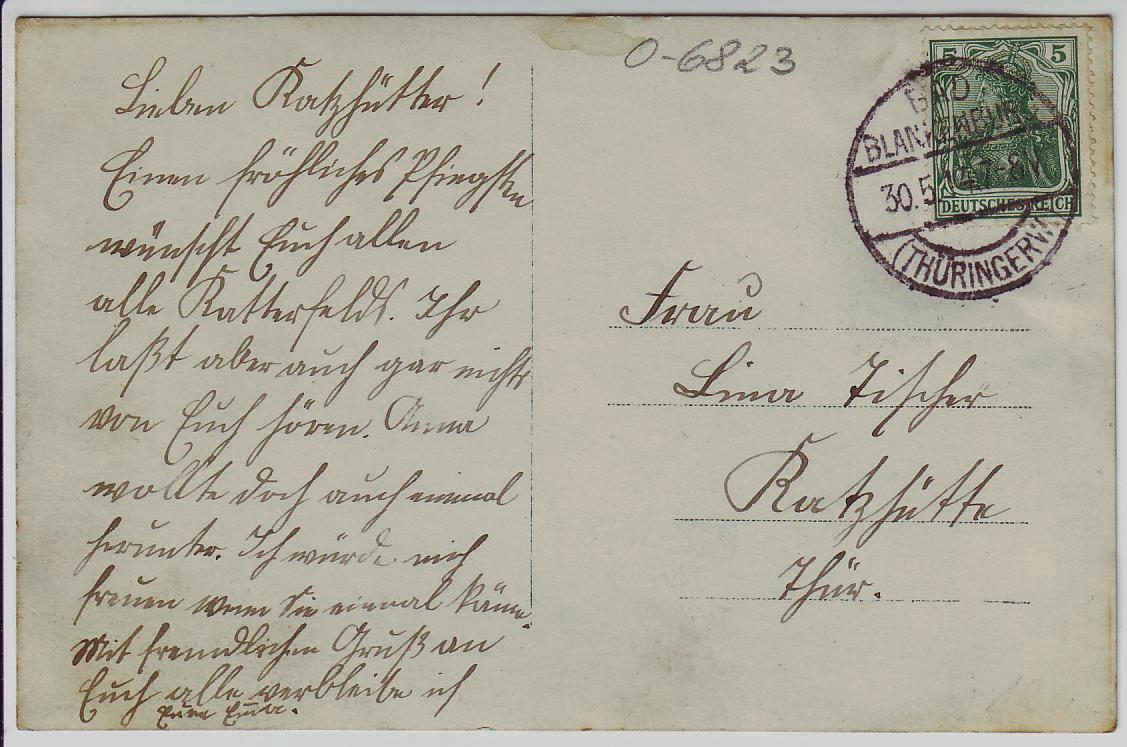 O-6823
5 5
BAD
BLANKENBURG
30.5.14.7-8 N
DEUTSCHES REICH
(THÜRINGERW.)
Lieben Katzhütter!
Einen fröhliches Pfingsten
wünscht Euch allen
alle Katterfelds. Ihr
laßt aber auch gar nichts
von Euch hören. Anna
wollte doch auch einmal
herunter. Ich würde mich
freuen wenn Sie einmal käme.
Mit freundlichen Gruß an
Euch alle verbleibe ich
Eure
Frau
Lina Tischer
Katzhütte
Thür.